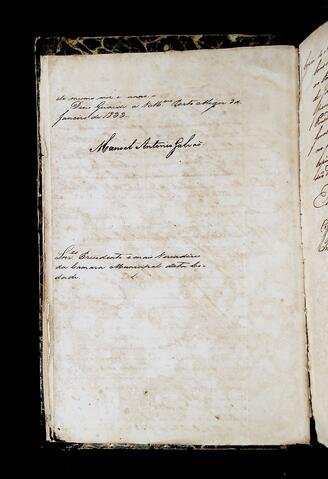 do mesmo mez e anno.
Deos Guarde a V.Mces Porto Alegre 3 de
Janeiro de 1833.
Manoel Antonio Galvão
Snres Presidente e mais Vereadores
da Camara Municipal desta Ci-
dade.